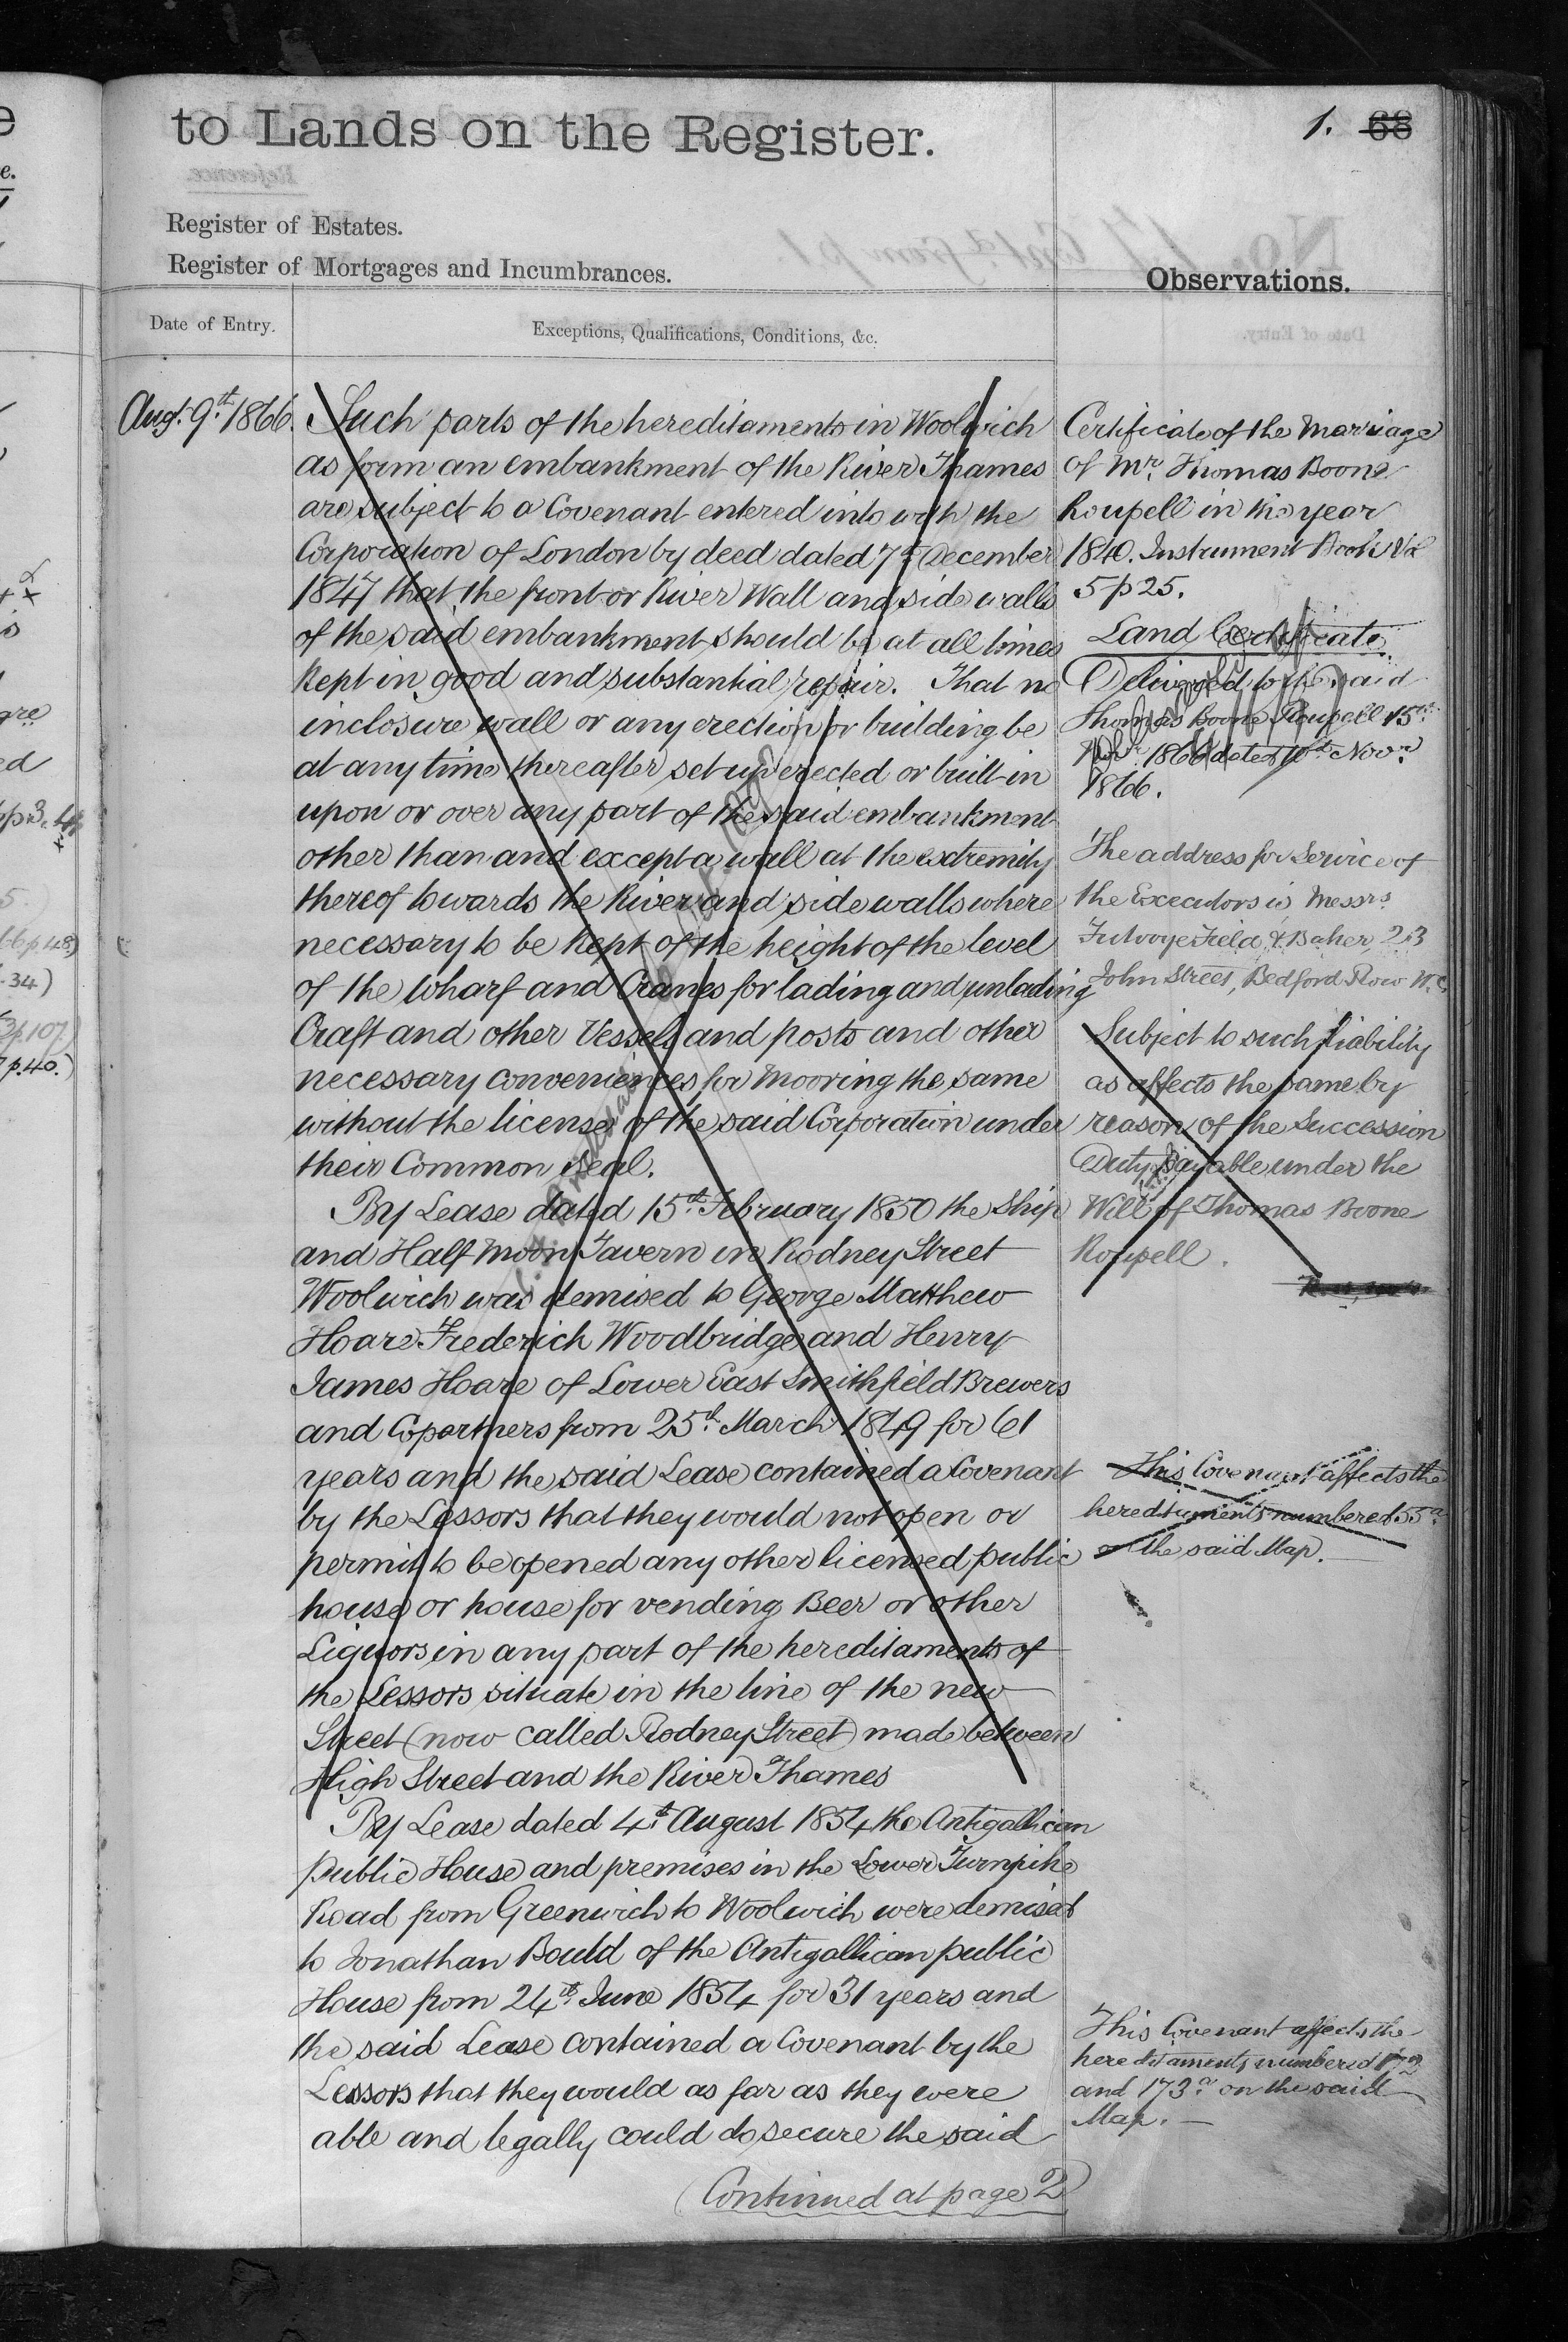 to Lands on the Register.
1. 68
Register of Estates.
Register of Mortgages and Incumbrances.
Observations.
Date of Entry.
Exceptions, Qualifications, Conditions, &c.
Augt. 9th 1866.
Such parts of the hereditaments in Woolwich
as form an embankment of the River Thames
are subject to a Covenant entered into with the
Corporation of London by deed dated 7th December
1847 that the front or River Wall and side walls
of the said embankment should be at all times
kept in good and substantial repair. That no
inclosure wall or any erection or building be
at any time thereafter set up erected or built in
upon or over any part of the said embankment
other than and except a wall at the extremity
thereof towards the River and side walls where
necessary to be kept of the height of the level
of the wharf and Cranes for lading and unlading
Craft and other Vessels and posts and other
necessary conveniences for mooring the same
without the license of the said Corporation under
their Common seal.
By Lease dated 15th February 1850 the Ship
and Half Moon Tavern in Rodney Street
Woolwich was demised to George Matthew
Hoare Frederick Woodbridge and Henry
James Hoare of Lower East Smithfield Brewers
and Copartners from 25th March 1849 for 61
years and the said Lease contained a Covenant
by the Lessors that they would not open or
permit to be opened any other licensed public
house or house for vending Beer or other
Liquors in any part of the hereditaments of
the Lessors situate in the line of the new
Street (now called Rodney Street) made between
High Street and the River Thames
By Lease dated 4th August 1854 the Antigallican
Public House and premises in the Lower Turnpike
Road from Greenwich to Woolwich were demised
to Jonathan Bould of the Antigallican public
House from 24th June 1854 for 31 years and
the said Lease contained a Covenant by the
Lessors that they would as far as they were
able and legally could do secure the said
(Continued at page 2)
Certificate of the Marriage
of Mr. Thomas Boone
Roupell in the year
1840. Instrument Book Vol
5 p 25.
Land Certificate
Delivered to the said
Thomas Boone Roupell 15th
1866 dated Novr.
1866.
The address for Service of
the Executors is Messrs
Field & Baker, 23
John Street, Bedford Row W.C.
Subject to such liability
as affects the same by
reason of the Succession
Duty payable under the
Will of Thomas Boone
Roupell.
This Covenant affects the
hereditaments numbered 55a
on the said Map.
This Covenant affects the
hereditaments numbered
and 173a on the said
Map.